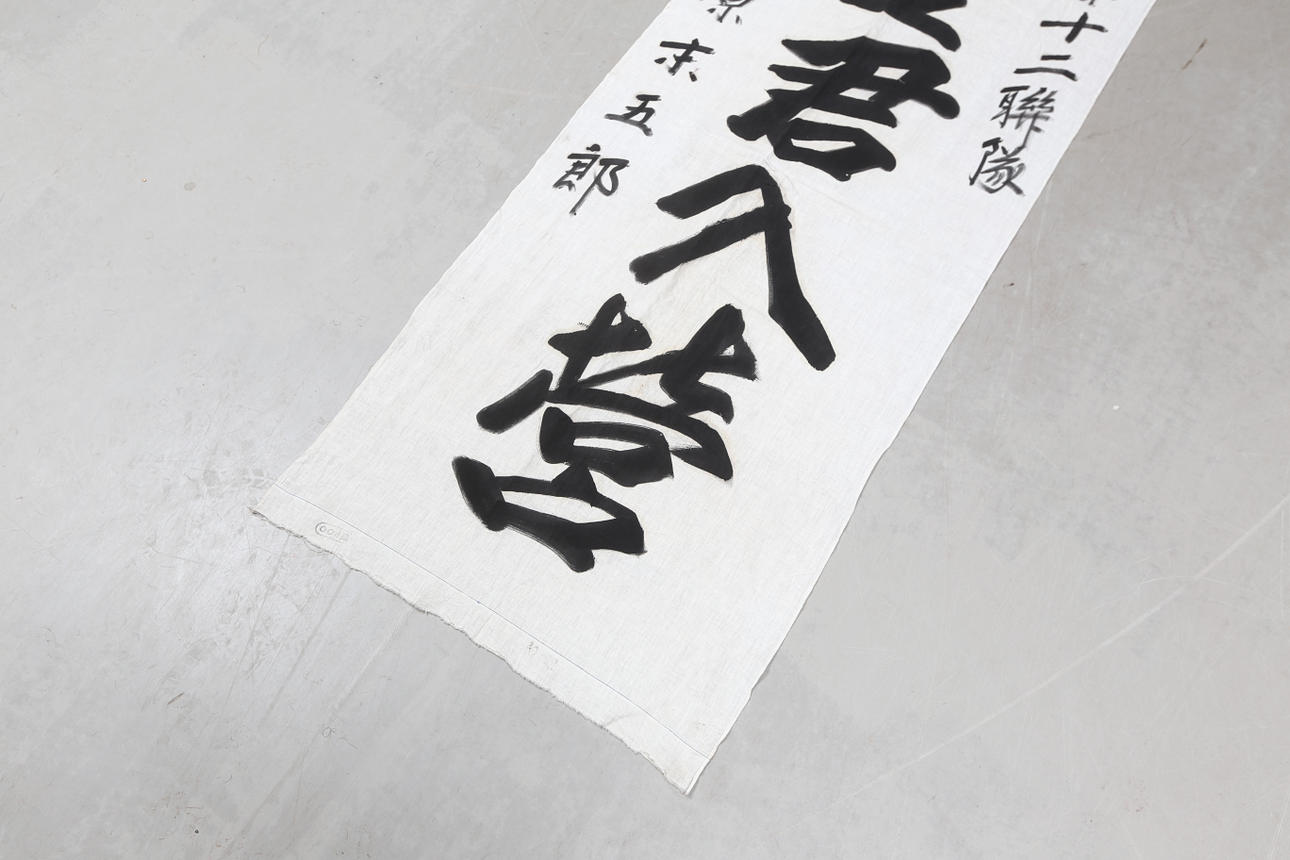 十二聯隊
君入営
原末五郎